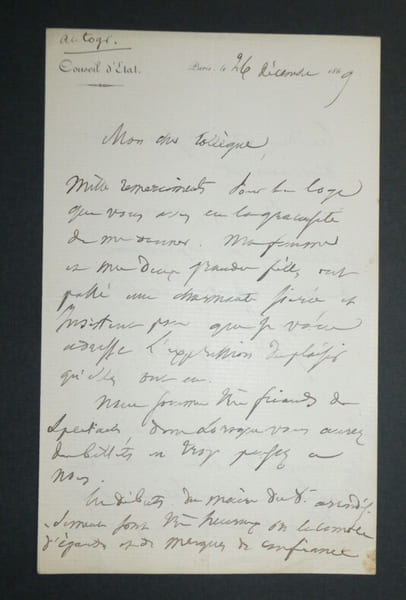 autogr.
Conseil d'Etat.
Paris, le 26 décembre 1869
Mon cher Collègue,
Mille remerciments pour la loge
que vous avez eu la gracieuseté
de me donner. Ma femme
et mes deux grandes filles ont
passé une charmante soirée et
insistent pour que je vous
adresse l'expression du plaisir
qu'elles ont eu.
Nous sommes très friands de
spectacles donc Lorsque vous aurez
des billets en trop pensez à
nous.
Les débuts du maire du arrondis-
sement sont très heureux on le comble
d'égards et de marques de confiance